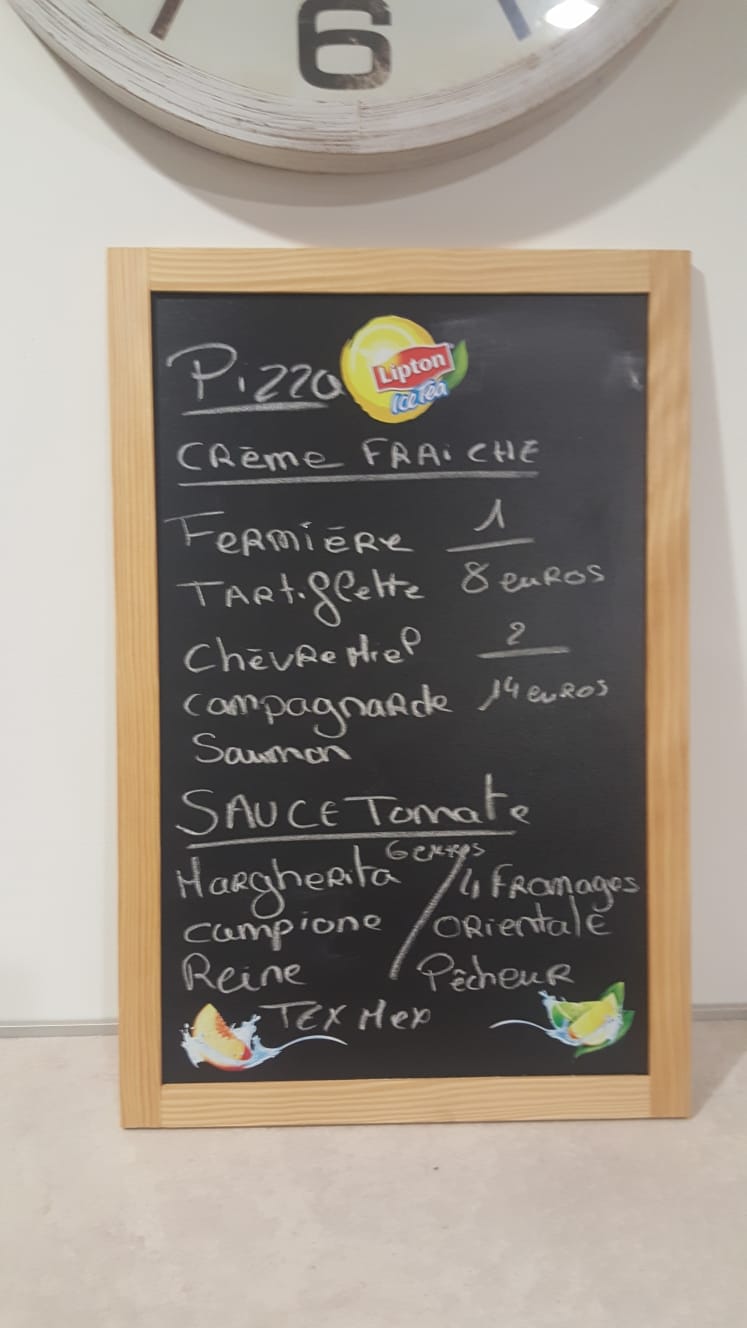 6
Pizza
Lipton
Ice Tea
CRème FRAiCHE
FeRMièRe 1
TARtiflette 8 euROS
ChèvRe Miel 2
campagnaRde 14 euROS
Saumon
SAUCE Tomate
6 euros
MaRgheRita / 4 FRomages
campione / ORientalE
Reine / PêcheuR
TEX Mex